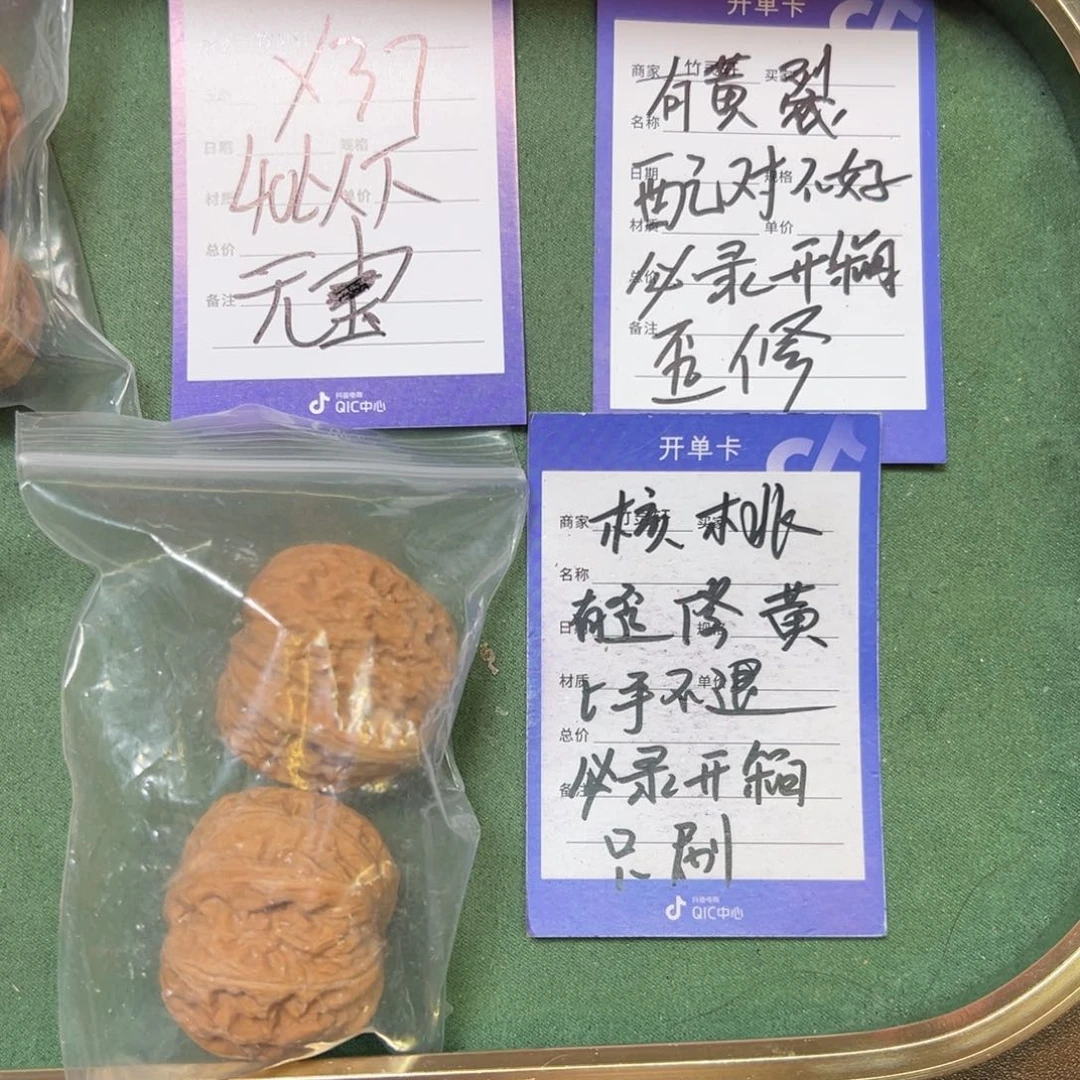 X37
40以下
元宝
日期
规格
材质
单价
总价
备注
抖音电商
QIC中心
开单卡
商家 竹灵轩 买家
有黄裂
名称
日期 规格
配对不好
材质 单价
总价
必录开箱
备注
歪修
开单卡
商家 竹灵轩 买家
核桃
名称
有歪修黄
材质 单价
上手不退
总价
备注
必录开箱
只刷
抖音电商
QIC中心